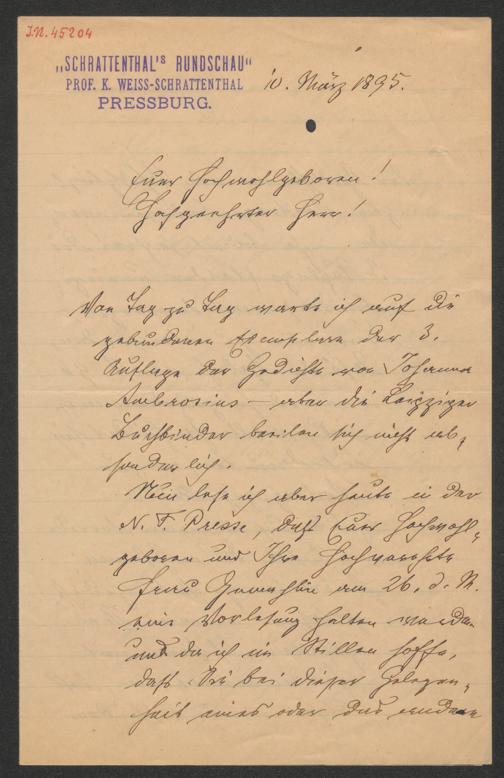 I.N. 45204
„SCHRATTENTHAL'S RUNDSCHAU“
PROF. K. WEISS-SCHRATTENTHAL
PRESSBURG.
10. März 1895.
Euer Hochwohlgeboren!
Hochgeehrter Herr!
Von Tag zu Tag warte ich auf die
gebundenen Exemplare der 3.
Auflage der Gedichte von Johanna
Ambrosius – aber die Leipziger
Buchbinder beeilen sich nicht ab-
sonderlich.
Nun lese ich aber heute in der
N. F. Presse, daß Euer Hochwohl-
geboren und Ihre Hochverehrte
Frau Gemahlin am 26. d. M.
eine Vorlesung halten werden
und da ich im Stillen hoffe,
daß Sie bei dieser Gelegen-
heit eines oder das andere